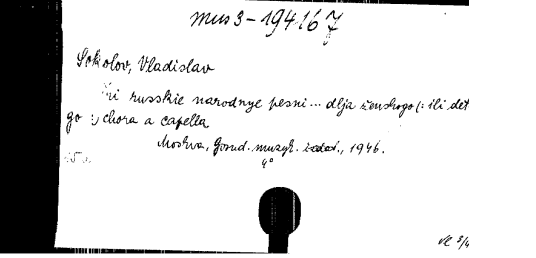 mus 3-19416
Sokolov, Vladislav
Tri russkie narodnye pesni ... dlja ženskogo (: ili det
go :) chora a capella
Moskva, Gosud. muzyk. izdat., 1946.
4°